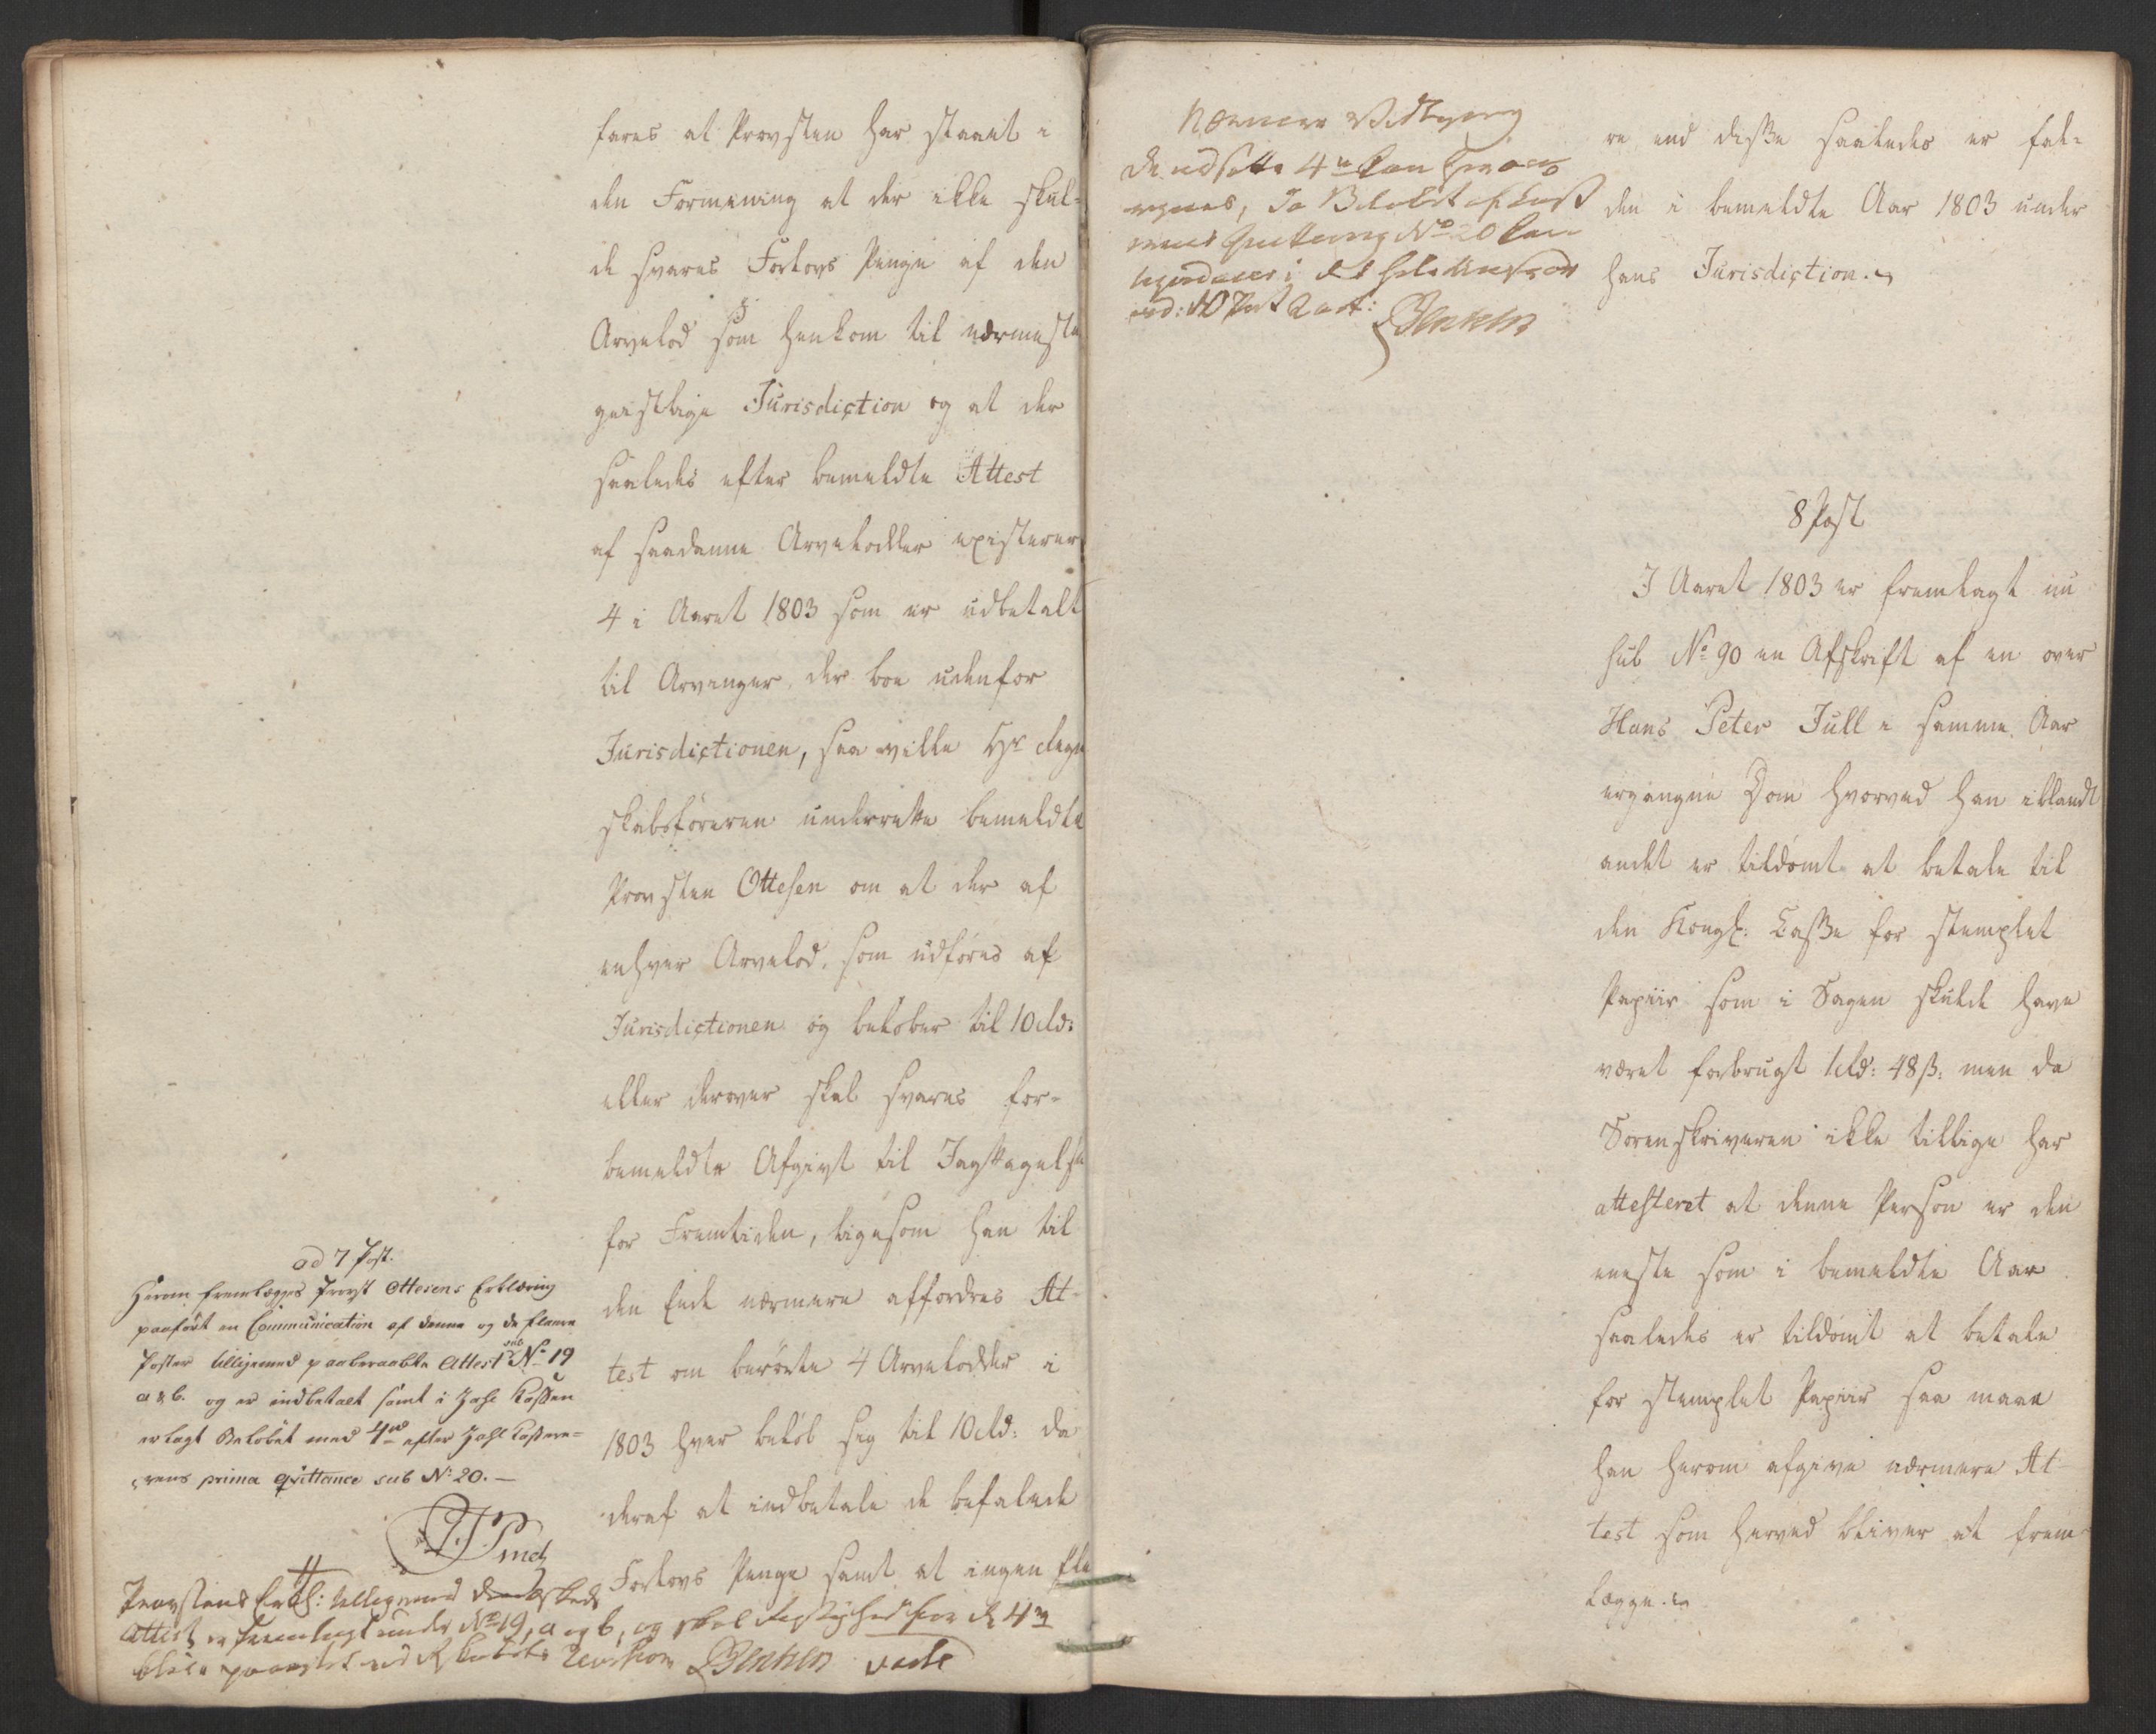 fares at Provsten har staaet i
den Formening at der ikke skul-
de svares Forlovs Penge af den
Arvelod som henkom til nærmeste
geistlige Jurisdiction og at der
saaledes efter bemeldte Attest
af saadanne Arvelodder existerer
4 i Aaret 1803 som er udbetalt
til Arvinger der boe udenfor
Jurisdictionen, saa ville Hr Regn
skabsføreren underrette bemeldte
Provsten Ottesen om at der af
enhver Arvelod, som udføres af
Jurisdictionen og beløber til 10 Rd:
eller derover skal svares for-
bemeldte Afgivt til Iagttagelse
for Fremtiden, ligesom han til
den Ende nærmere affordres At-
test om berørte 4 Arvelodder i
1803 hver beløb sig til 10 Rd: da
deraf at indbetale de befalede
Forlovs Penge samt at ingen fle
ad 7 Post.
Herom fremlægges Provst Ottesens Erklæring
paaført en Communication af denne og de fleere
Poster tilligemed paaberaabte Attest sub No 19
a & b. og er indbetalt samt i Zahl Kassen
erlagt Beløbet med 4 rd efter Zahl Kassere-
rens prima qvittance sub No 20. —
Provstens Erkl: tilligemed
Attest er fremlagt under No 19, a og b, og skal
blive paa ved Revision Bentzen
Nærmere
De udsatte 4
da Beløbet
Qvittering No 20 kan
ad: 10 Post
Bentzen
re end disse saaledes er fal-
den i bemeldte Aar 1803 under
hans Jurisdiction.
8 Post
I Aaret 1803 er fremlagt nu
sub No 90 en Afskrift af en over
Hans Peter Jull i samme Aar
ergangne Dom hvorved han iblandt
andet er tildømt at betale til
den Kongl: Casse for stemplet
Papiir som i Sagen skulde have
været forbrugt 1 Rd: 48 ß: men da
Sorenskriveren ikke tillige har
attesteret at denne Person er den
eneste som i bemeldte Aar
saaledes er tildømt at betale
for stemplet Papiir saa maae
han herom afgive nærmere At
test som herved bliver at frem-
lægge.